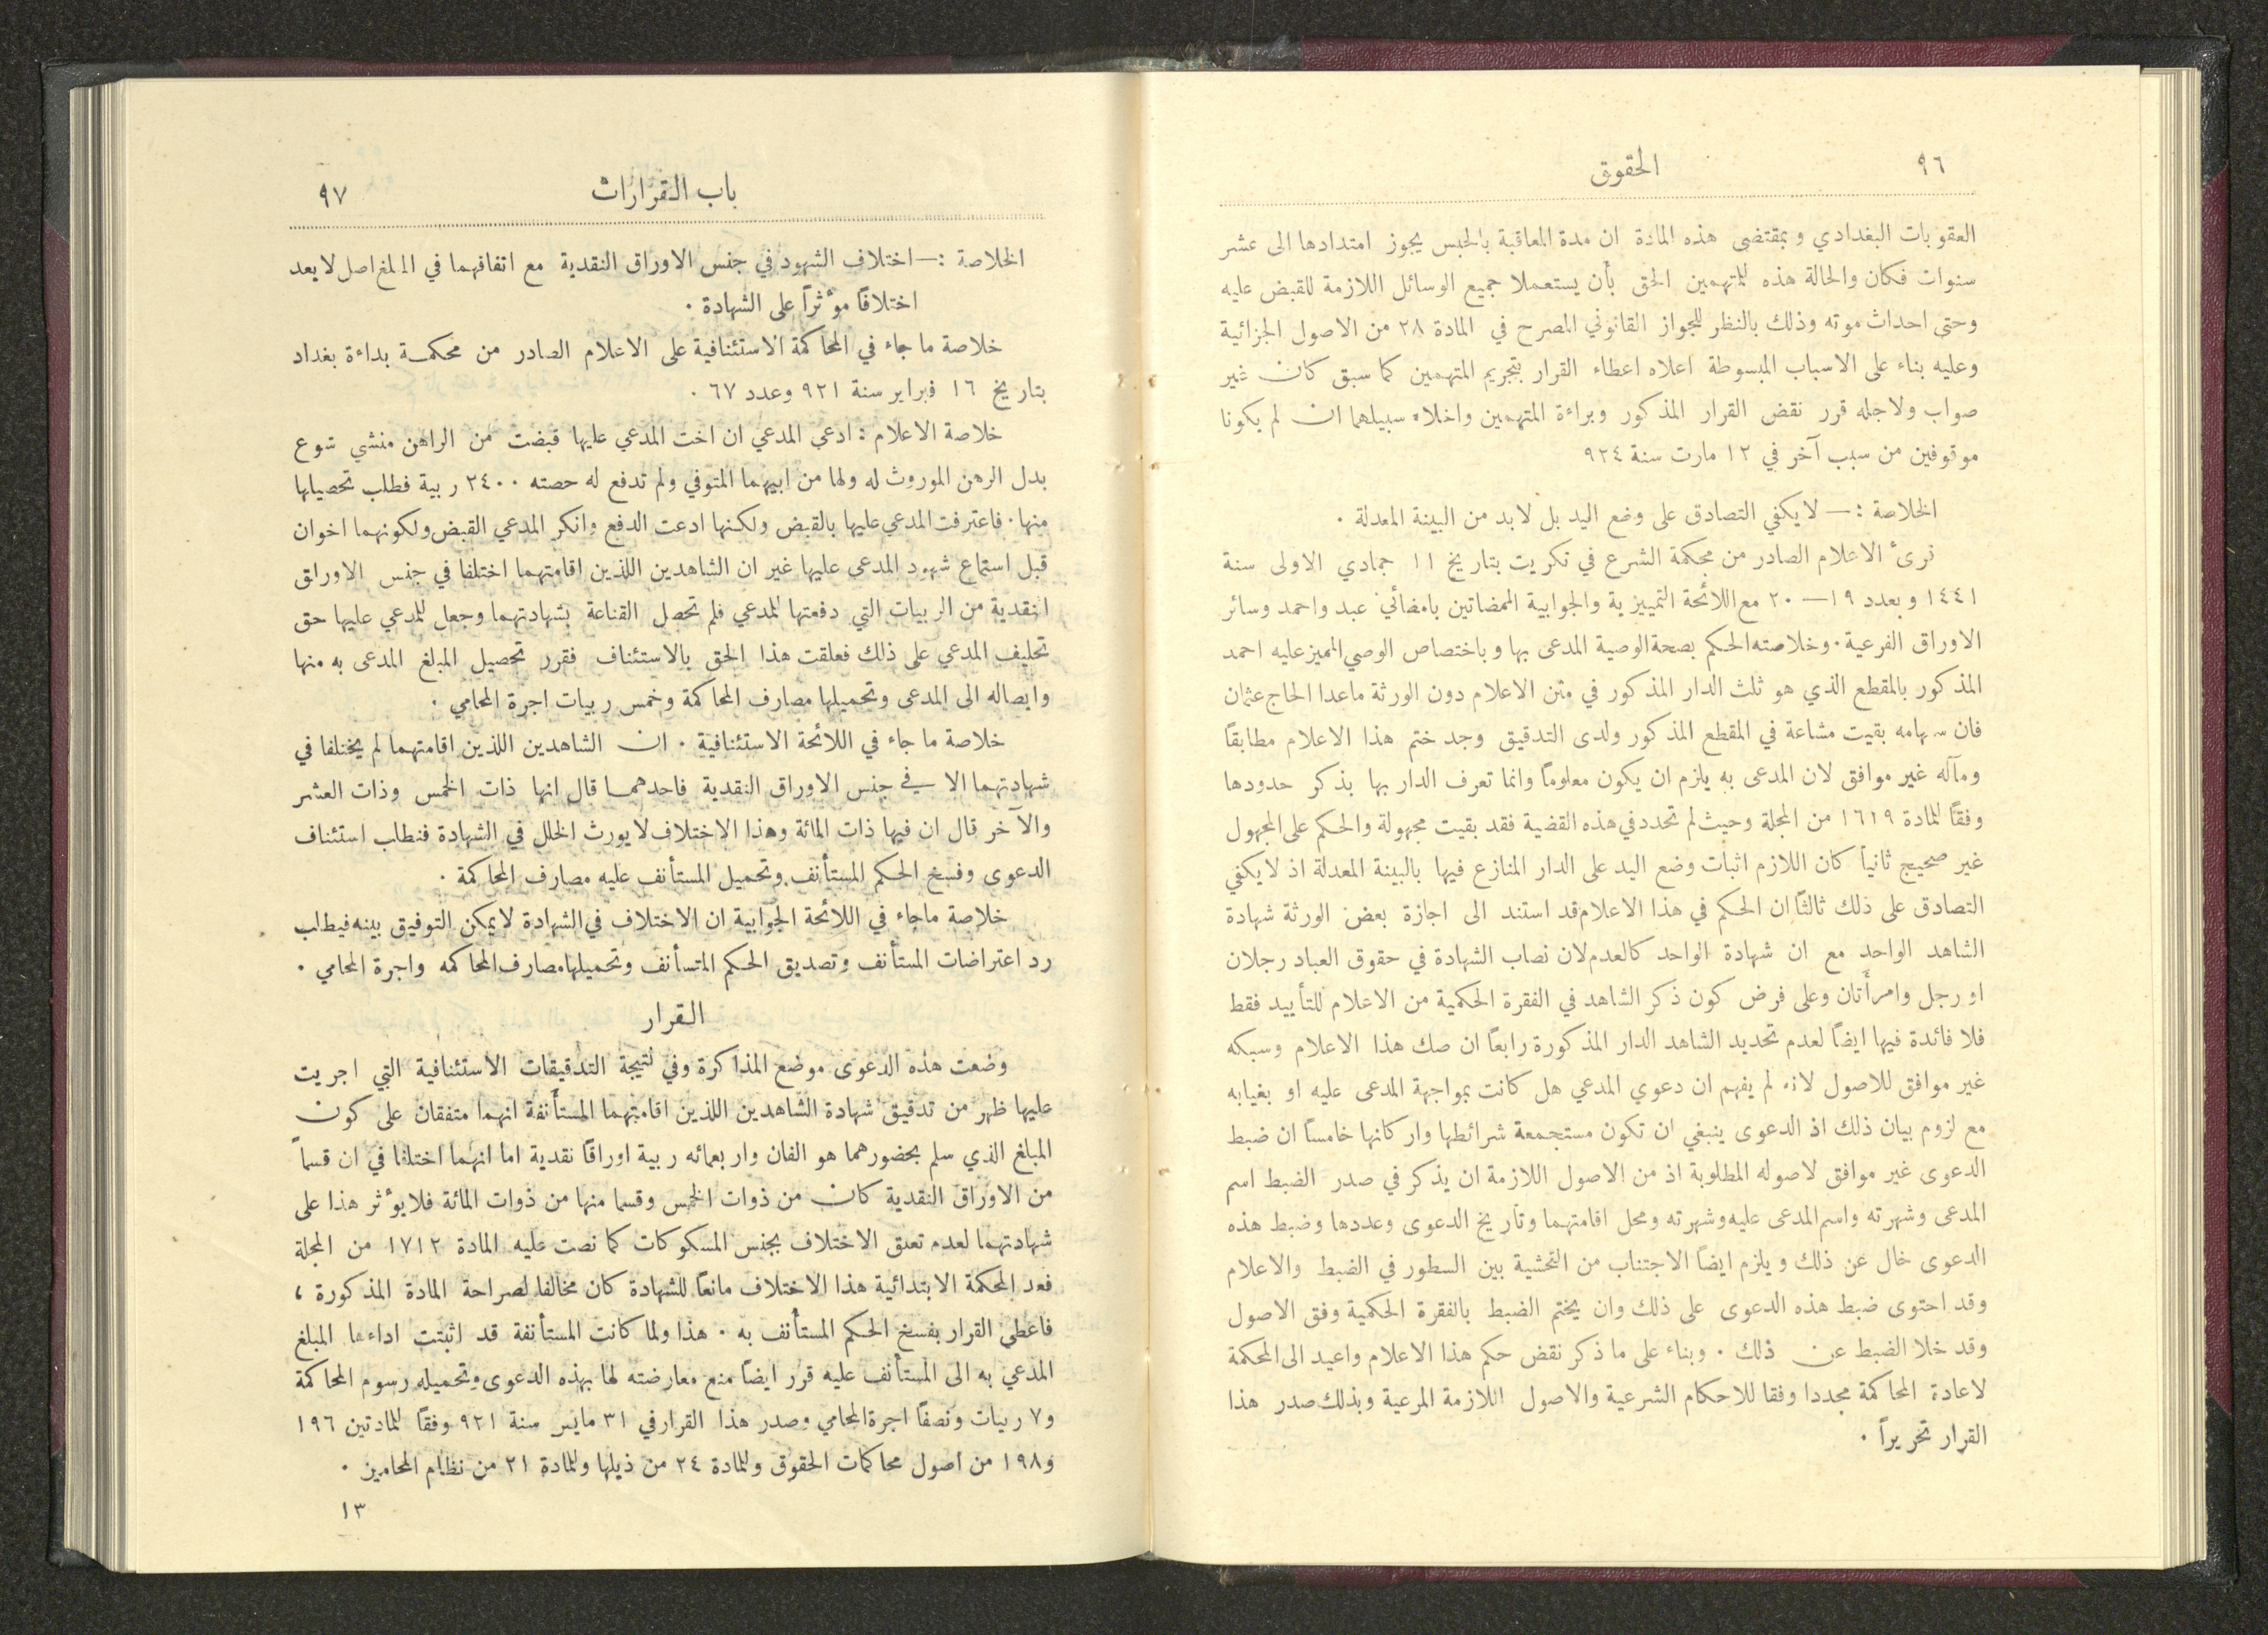 ٩٦
الحقوق
العقوبات البغدادي وبمقتضى هذه المادة ان مدة المعاقبة بالحبس يجوز امتدادها الى عشر
سنوات فكان والحالة هذه للمتهمين الحق بأن يستعملا جميع الوسائل اللازمة للقبض عليه
وحتى احداث موته وذلك بالنظر للجواز القانوني المصرح في المادة ٢٨ من الاصول الجزائية
وعليه بناء على الاسباب المبسوطة اعلاه اعطاء القرار بتجريم المتهمين كما سبق كان غير
صواب ولاجله قرر نقض القرار المذكور وبراءة المتهمين واخلاء سبيلهما ان لم يكونا
موقوفين من سبب آخر في ١٢ مارت سنة ٩٢٤
الخلاصة :— لا يكفي التصادق على وضع اليد بل لا بد من البينة المعدلة ٠
قرئ الاعلام الصادر من محكمة الشرع في تكريت بتاريخ ١١ جمادي الاولى سنة
١٤٤١ وبعدد ١٩—٢٠ مع اللائحة التمييزية والجوابية الممضاتين بامضائي عبد واحمد وسائر
الاوراق الفرعية ٠ وخلاصته الحكم بصحة الوصية المدعى بها وباختصاص الوصي المميز عليه احمد
المذكور بالمقطع الذي هو ثلث الدار المذكور في متن الاعلام دون الورثة ماعدا الحاج عثمان
فان سهامه بقيت مشاعة في المقطع المذكور ولدى التدقيق وجد ختم هذا الاعلام مطابقاً
ومآله غير موافق لان المدعى به يلزم ان يكون معلوماً وانما تعرف الدار بها بذكر حدودها
وفقاً للمادة ١٦١٩ من المجلة وحيث لم تحدد في هذه القضية فقد بقيت مجهولة والحكم على المجهول
غير صحيح ثانياً كان اللازم اثبات وضع اليد على الدار المنازع فيها بالبينة المعدلة اذ لا يكفي
التصادق على ذلك ثالثاً ان الحكم في هذا الاعلام قد استند الى اجازة بعض الورثة شهادة
الشاهد الواحد مع ان شهادة الواحد كالعدم لان نصاب الشهادة في حقوق العباد رجلان
او رجل وامرأتان وعلى فرض كون ذكر الشاهد في الفقرة الحكمية من الاعلام للتأييد فقط
فلا فائدة فيها ايضاً لعدم تحديد الشاهد الدار المذكورة رابعاً ان صك هذا الاعلام وسبكه
غير موافق للاصول لانه لم يفهم ان دعوي المدعي هل كانت بمواجهة المدعى عليه او بغيابه
مع لزوم بيان ذلك اذ الدعوى ينبغي ان تكون مستجمعة شرائطها واركانها خامساً ان ضبط
الدعوى غير موافق لاصوله المطلوبة اذ من الاصول اللازمة ان يذكر في صدر الضبط اسم
المدعى وشهرته واسم المدعى عليه وشهرته ومحل اقامتهما وتاريخ الدعوى وعددها وضبط هذه
الدعوى خال عن ذلك ويلزم ايضاً الاجتناب من التحشية بين السطور في الضبط والاعلام
وقد احتوى ضبط هذه الدعوى على ذلك وان يختم الضبط بالفقرة الحكمية وفق الاصول
وقد خلا الضبط عن ذلك ٠ وبناء على ما ذكر نقض حكم هذا الاعلام واعيد الى المحكمة
لاعادة المحاكمة مجددا وفقا للاحكام الشرعية والاصول اللازمة المرعية وبذلك صدر هذا
القرار تحريراً ٠
باب القرارات
٩٧
الخلاصة :— اختلاف الشهود في جنس الاوراق النقدية مع اتفاقهما في المبلغ اصل لا يعد
اختلافاً مؤثراً على الشهادة ٠
خلاصة ما جاء في المحاكمة الاستئنافية على الاعلام الصادر من محكمة بداءة بغداد
بتاريخ ١٦ فبراير سنة ٩٢١ وعدد ٦٧ ٠
خلاصة الاعلام : ادعى المدعي ان اخت المدعي عليها قبضت من الراهن منشي شوع
بدل الرهن الموروث له ولها من ابيهما المتوفي ولم تدفع له حصته ٢٤٠٠ ربية فطلب تحصيلها
منها ٠ فاعترفت المدعي عليها بالقبض ولكنها ادعت الدفع وانكر المدعي القبض ولكونهما اخوان
قبل استماع شهود المدعى عليها غير ان الشاهدين اللذين اقامتهما اختلفا في جنس الاوراق
النقدية من الربيات التي دفعتها للمدعي فلم تحصل القناعة بشهادتهما وجعل للمدعي عليها حق
تحليف المدعي على ذلك فعلقت هذا الحق بالاستئناف فقرر تحصيل المبلغ المدعى به منها
وايصاله الى المدعى وتحميلها مصارف المحاكمة وخمس ربيات اجرة المحامي ٠
خلاصة ما جاء في اللائحة الاستئنافية ٠ ان الشاهدين اللذين اقامتهما لم يختلفا في
شهادتهما الا في جنس الاوراق النقدية فاحدهما قال انها ذات الخمس وذات العشر
والآخر قال ان فيها ذات المائة وهذا الاختلاف لا يورث الخلل في الشهادة فنطلب استئناف
الدعوى وفسخ الحكم المستأنف وتحميل المستأنف عليه مصارف المحاكمة ٠
خلاصة ماجاء في اللائحة الجوابية ان الاختلاف في الشهادة لا يمكن التوفيق بينه فيطلب
رد اعتراضات المستأنف وتصديق الحكم المتسأنف وتحميلها مصارف المحاكمه واجرة المحامي ٠
القرار
وضعت هذه الدعوى موضع المذاكرة وفي نتيجة التدقيقات الاستئنافية التي اجريت
عليها ظهر من تدقيق شهادة الشاهدين اللذين اقامتهما المستأنفة انهما متفقان على كون
المبلغ الذي سلم بحضورهما هو الفان واربعمائه ربية اوراقاً نقدية اما انهما اختلفا في ان قسماً
من الاوراق النقدية كان من ذوات الخمس وقسما منها من ذوات المائة فلا يؤثر هذا على
شهادتهما لعدم تعلق الاختلاف بجنس المسكوكات كما نصت عليه المادة ١٧١٢ من المجلة
فعد المحكمة الابتدائية هذا الاختلاف مانعاً للشهادة كان مخالفا لصراحة المادة المذكورة ،
فاعطي القرار بفسخ الحكم المستأنف به ٠ هذا ولما كانت المستأنفة قد اثبتت اداءها المبلغ
المدعي به الى المستأنف عليه قرر ايضاً منع معارضته لها بهذه الدعوى وتحميله رسوم المحاكمة
و٧ ربيات ونصفاً اجرة المحامي وصدر هذا القرار في ٣١ مايس سنة ٩٢١ وفقاً للمادتين ١٩٦
و١٩٨ من اصول محاكمات الحقوق وللمادة ٢٤ من ذيلها وللمادة ٢١ من نظام المحامين ٠
١٣